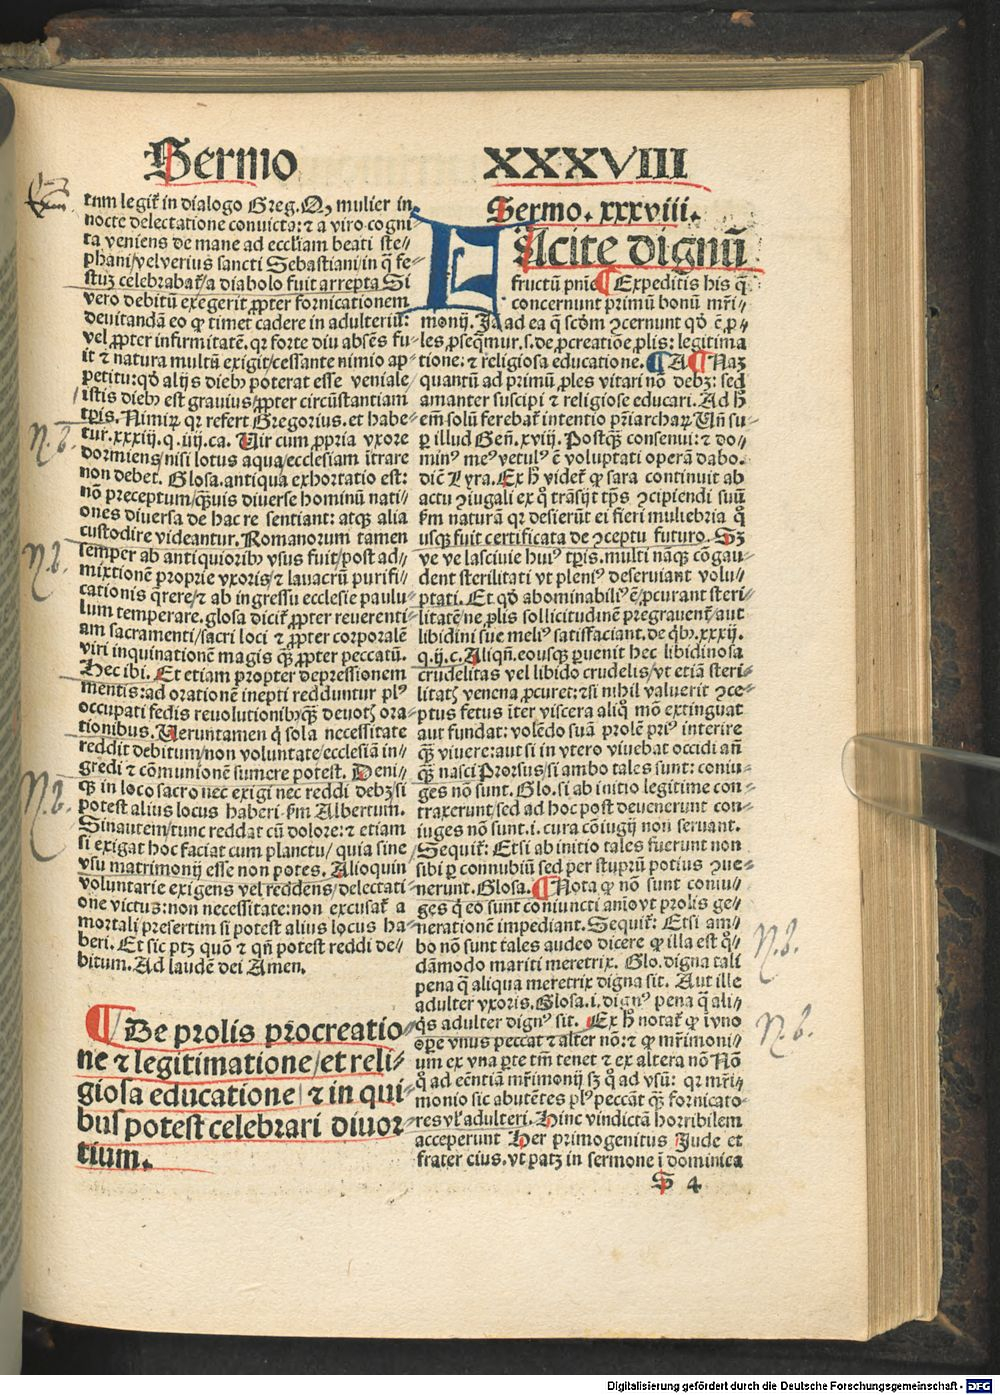 Sermo XXXVIII
tum legit̉ in dialogo Greg. Qꝫ mulier in
nocte delectatione conuicta: ⁊ a viro cogni-
ta veniens de mane ad eccl̃iam beati ste-
phani/vel verius sancti Sebastiani/in q̃ fe-
stuꝫ celebrabat̉/a diabolo fuit arrepta Si
vero debitũ exegerit ꝓpter fornicationem
deuitandã eo ꝙ timet cadere in adulteriũ:
vel ꝓpter infirmitatẽ. qꝛ forte diu absẽs fu-
it ⁊ natura multũ exigit/cessante nimio ap-
petitu: qđ alijs dieb⁹ poterat esse veniale
istis dieb⁹ est grauius/ꝓpter circũstantiam
tp̃is. Nimiꝝ qꝛ refert Gregorius. et habe-
tur. xxxiij. q. iiij. ca. Uir cum ꝓpria vxore
dormiens/nisi lotus aqua/ecclesiam ĩtrare
non debet. Glosa. antiqua exhortatio est:
nõ preceptum/qꝫuis diuerse hominũ nati-
ones diuersa de hac re sentiant: atqꝫ alia
custodire videantur. Romanorum tamen
semper ab antiquiorib⁹ vsus fuit/post ad-
mixtionẽ proprie vxoris/⁊ lauacrũ purifi-
cationis q̃rere/⁊ ab ingressu ecclesie paulu-
lum temperare. glosa dicit̉ ꝓpter reuerenti-
am sacramenti/sacri loci ⁊ ꝓpter corporalẽ
viri inquinationẽ magis qꝫ ꝓpter peccatũ.
Hec ibi. Et etiam propter depressionem
mentis: ad orationẽ inepti redduntur pl⁹
occupati fedis reuolutionib⁹ qꝫ deuotꝭ ora-
tionibus. Ueruntamen q̃ sola necessitate
reddit debitum/non voluntate/ecclesiã in-
gredi ⁊ cõmunionẽ sumere potest. Deni-
qꝫ in loco sacro nec exigi nec reddi debꝫ/si
potest alius locus haberi. ẜm Albertum.
Sinautem/tunc reddat cũ dolore: ⁊ etiam
si exigat hoc faciat cum planctu/ quia sine
vsu matrimonij esse non potes. Alioquin
voluntarie exigens vel reddens/delectati-
one victus: non necessitate: non excusat̉ a
mortali/presertim si potest alius locus ha-
beri. Et sic ptꝫ quõ ⁊ qñ potest reddi de-
bitum. Ad laudẽ dei Amen.
¶ De prolis procreatio-
ne ⁊ legitimatione/et reli-
giosa educatione/⁊ in qui-
bus potest celebrari diuor-
tium.
N.b.
N.b.
N.b.
Sermo. xxxviii.
FAcite dignũ
fructũ pnĩe ¶ Expeditis his q̃
concernunt primũ bonũ mr̃i-
monij. Iã ad ea q̃ scđm ↄcernunt qđ ẽ ꝓ-
les ꝓseq̃mur. s. de ꝓcreatiõe ꝓlis: legitima
tione: ⁊ religiosa educatione. ¶ A ¶ Naꝫ
quantũ ad primũ ꝓles vitari nõ debꝫ: sed
amanter suscipi ⁊ religiose educari. Ad h̃
em̃ solũ ferebat̉ intentio pr̃iarchaꝝ Uñ su-
ꝑ illud Geñ. xviij. Postqꝫ consenui: ⁊ do-
min⁹ me⁹ vetul⁹ ẽ voluptati operã dabo.
dic̃ Lyra. Ex h̃ videt̉ ꝙ sara continuit ab
actu ↄiugali ex q̊ trãsijt tp̃s ↄcipiendi suũ
ẜm naturã qꝛ desierũt ei fieri muliebria q̊
usqꝫ fuit certificata de ↄceptu futuro. Sꝫ
ve ve lasciuie hui⁹ tp̃is. multi nãqꝫ cõgau-
dent sterilitati vt pleni⁹ deseruiant volu-
ptati. Et qđ abominabili⁹ ẽ/ꝓcurant steri-
litatẽ/ne ꝓlis sollicitudinẽ pregrauent̉/aut
libidini sue meli⁹ satisfaciant. de q̃b⁹. xxxij.
q. ij. c. Aliqñ. eousqꝫ ꝑuenit hec libidinosa
crudelitas vel libido crudelis/vt etiã steri-
litatꝭ venena ꝓcuret: ⁊ si nihil valuerit ↄce-
ptus fetus ĩter viscera aliq̊ mõ extinguat
aut fundat: volẽdo suã prolẽ pri⁹ interire
qꝫ viuere: aut si in vtero viuebat occidi añ
qꝫ nasci Prorsus/si ambo tales sunt: coniu-
ges nõ sunt. Glo. si ab initio legitime con-
traxerunt/sed ad hoc post deuenerunt con-
iuges nõ sunt. i. cura cõiugij non seruant.
Sequit̉: Etsi ab initio tales fuerunt non
sibi ꝑ connubiũ sed per stuprũ potius ↄue-
nerunt. Glosa. ¶ Nota ꝙ nõ sunt coniu-
ges q̃ eo sunt coniuncti aĩo vt prolis ge-
nerationẽ impediant. Sequit̉: Etsi am-
bo nõ sunt tales audeo dicere ꝙ illa est q̊-
dãmodo mariti meretrix. Glo. digna tali
pena q̃ aliqua meretrix digna sit. Aut ille
adulter vxoris. Glosa. i. dign⁹ pena q̃ ali-
q̃s adulter dign⁹ sit. Ex h̃ notat̉ ꝙ in vno
oꝑe vnus peccat ⁊ alter nõ: ⁊ ꝙ mr̃imoni-
um ex vna ꝑte tm̃ tenet ⁊ ex altera nõ Nõ
q̊ ad eẽntiã mr̃imonij sꝫ q̊ ad vsũ: qꝛ mr̃i-
monio sic abutẽtes pl⁹ peccãt qꝫ fornicato-
res vl̃ adulteri. Hinc vindictã horribilem
acceperunt Her primogenitus Jude et
frater eius. vt patꝫ in sermone ĩ dominica
S 4
N.b.
N.b.
Digitalisierung gefördert durch die Deutsche Forschungsgemeinschaft - DFG